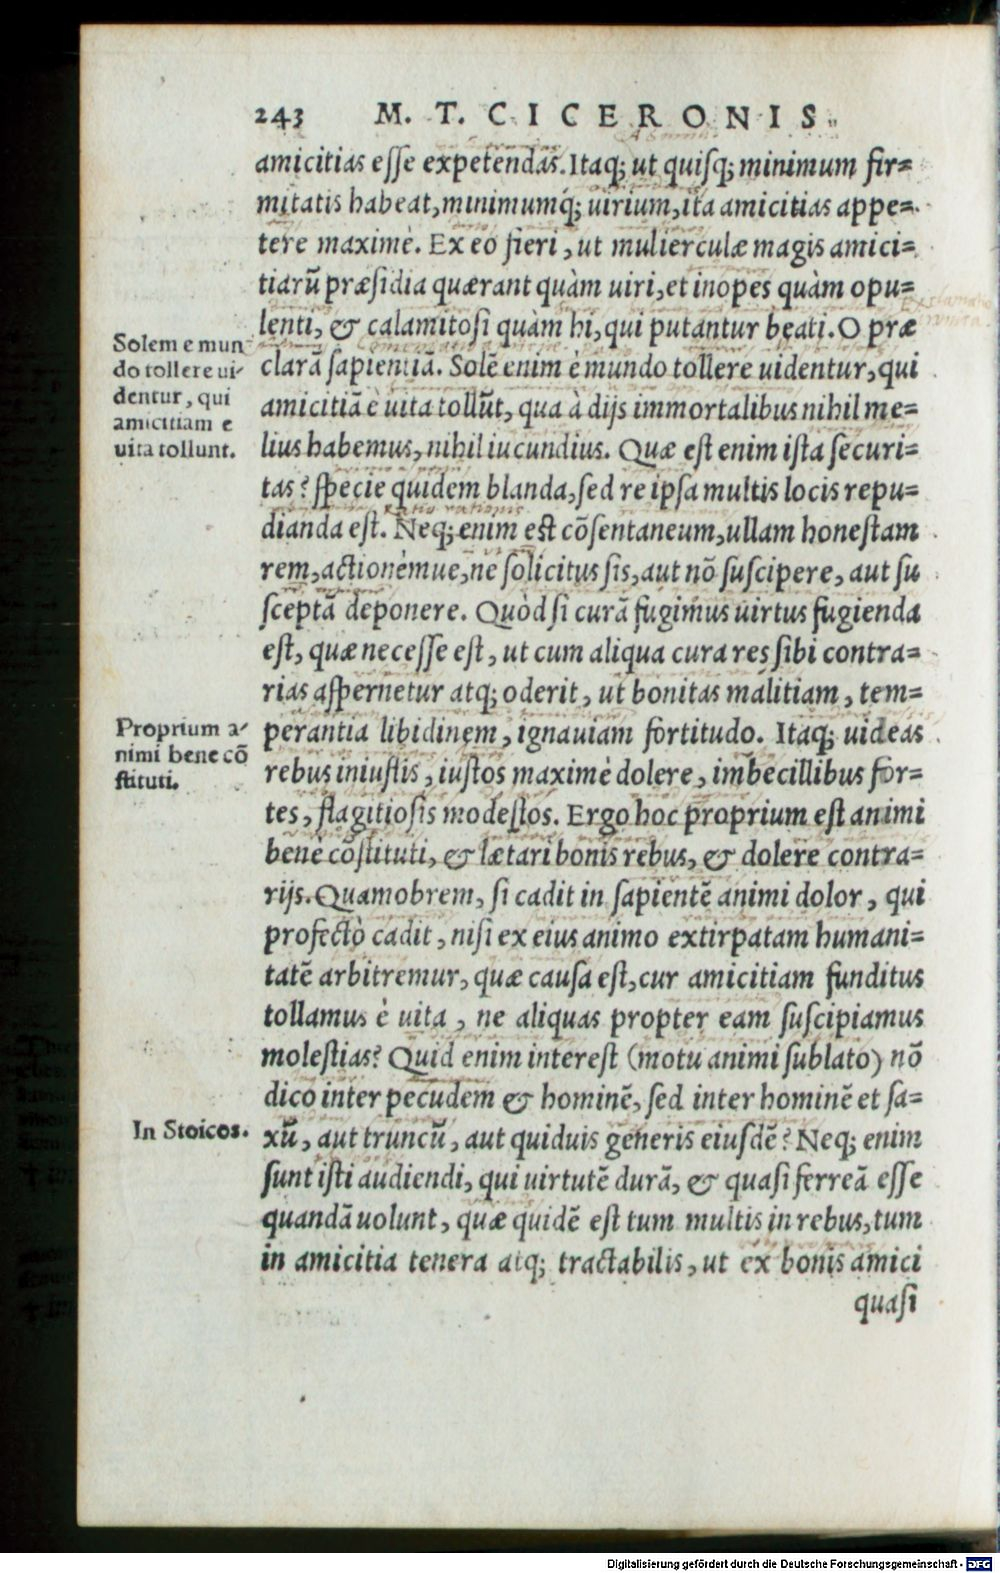 243 M. T. CICERONIS
amicitias eſſe expetendas. Itaq; ut quiſq; minimum fir=
mitatis habeat, minimumq́; uirium, ita amicitias appe=
tere maximè. Ex eo fieri, ut mulierculæ magis amici=
tiarũ præſidia quærant quàm uiri, et inopes quàm opu=
lenti, & calamitoſi quàm hi, qui putantur beati. O præ
clarã ſapientiã. Solẽ enim è mundo tollere uidentur, qui
amicitiã è uita tollũt, qua à dijs immortalibus nihil me=
lius habemus, nihil iucundius. Quæ eſt enim iſta ſecuri=
tas? ſpecie quidem blanda, ſed re ipſa multis locis repu=
dianda eſt. Neq; enim est cõſentaneum, ullam honeſtam
rem, actionémue, ne ſolicitus ſis, aut nõ ſuſcipere, aut ſu
ſceptã deponere. Quòd ſi curã fugimus uirtus fugienda
eſt, quæ neceſſe eſt, ut cum aliqua cura res ſibi contra=
rias aſpernetur atq; oderit, ut bonitas malitiam, tem=
perantia libidinem, ignauiam fortitudo. Itaq; uideas
rebus iniuſtis, iuſtos maximè dolere, imbecillibus for=
tes, flagitioſis modeſtos. Ergo hoc proprium eſt animi
bene cõſtituti, & lætari bonis rebus, & dolere contra=
rijs. Quamobrem, ſi cadit in ſapientẽ animi dolor, qui
profectò cadit, niſi ex eius animo extirpatam humani=
tatẽ arbitremur, quæ cauſa eſt, cur amicitiam funditus
tollamus è uita, ne aliquas propter eam ſuſcipiamus
moleſtias? Quid enim intereſt (motu animi ſublato) nõ
dico inter pecudem & hominẽ, ſed inter hominẽ et ſa=
xũ, aut truncũ, aut quiduis generis eiuſdẽ? Neq; enim
ſunt iſti audiendi, qui uirtutẽ durã, & quaſi ferreã eſſe
quandã uolunt, quæ quidẽ eſt tum multis in rebus, tum
in amicitia tenera atq; tractabilis, ut ex bonis amici
quaſi
Solem e mun
do tollere ui-
dentur, qui
amicitiam e
uita tollunt.
Proprium a-
nimi bene cõ
ſtituti.
In Stoicos.
Digitalisierung gefördert durch die Deutsche Forschungsgemeinschaft - DFG